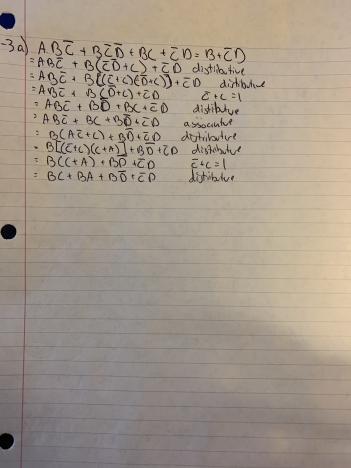 -3a) ABC̅ + BC̅D̅ + BC + C̅D = B+C̅D
= ABC̅ + B(C̅D̅+C) + C̅D distributive
= ABC̅ + B[(C̅+C)(D̅+C)] + C̅D distributive
= ABC̅ + B(D̅+C) + C̅D C̅+C=1
= ABC̅ + BD̅ + BC + C̅D distributive
= ABC̅ + BC + BD̅ + C̅D associative
= B(AC̅+C) + BD̅ + C̅D distributive
= B[(C̅+C)(C+A)] + BD̅ + C̅D distributive
= B(C+A) + BD̅ + C̅D C̅+C=1
= BC + BA + BD̅ + C̅D distributive